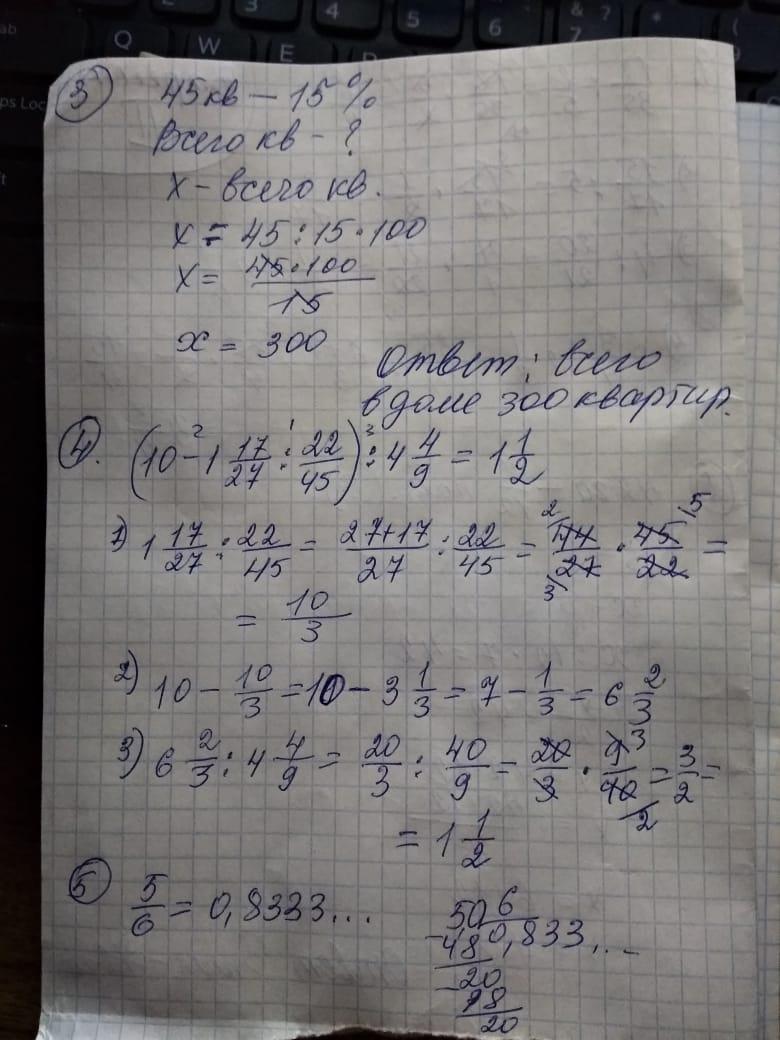 3
45 кв — 15 %
Всего кв - ?
X - всего кв.
x = 45 : 15 · 100
x = 45·100/15
x = 300
Ответ: всего
в доме 300 квартир.
4. (10 - 1 17/27 : 22/45) : 4 4/9 = 1 1/2
2 1 3
1) 1 17/27 : 22/45 = 27+17/27 : 22/45 = 44/27 · 45/22 =
2 5 3
= 10/3
2) 10 - 10/3 = 10 - 3 1/3 = 7 - 1/3 = 6 2/3
3) 6 2/3 : 4 4/9 = 20/3 : 40/9 = 20/3 · 9/40 = 3/2 =
3 2
= 1 1/2
5 5/6 = 0,8333...
50 6
-48 0,833...
-20
18
20
Q W E
3 4 5 6 & 7 ?